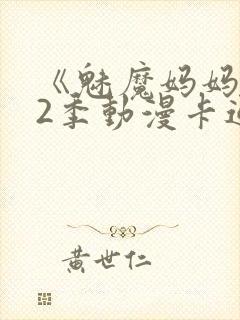 《魅魔妈妈
2季動漫卡通
黄世仁